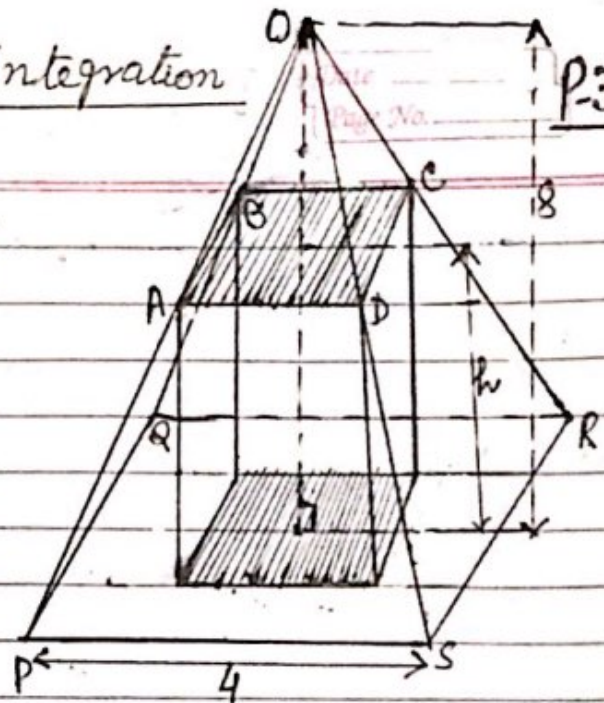 Integration
Date
Page No.
P-3
O
B
C
8
A
D
h
Q
R
P
4
S